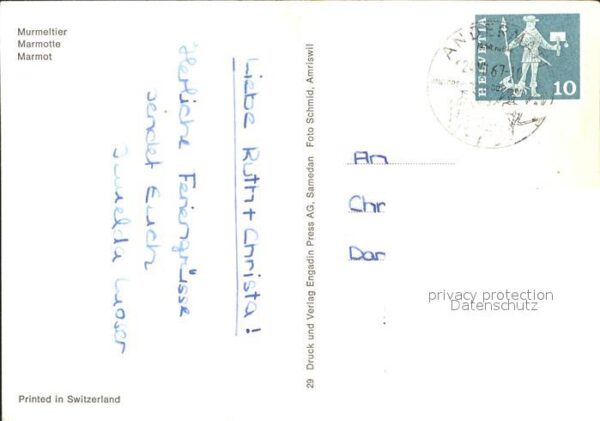 Murmeltier
Marmotte
Marmot
Liebe Ruth + Christa!
Herliche Feriengrüsse
sendet Euch
Imelda Moser
29 Druck und Verlag Engadin Press AG, Samedan Foto Schmid, Amriswil
HELVETIA
10
An
Chr
Dar
privacy protection
Datenschutz
Printed in Switzerland